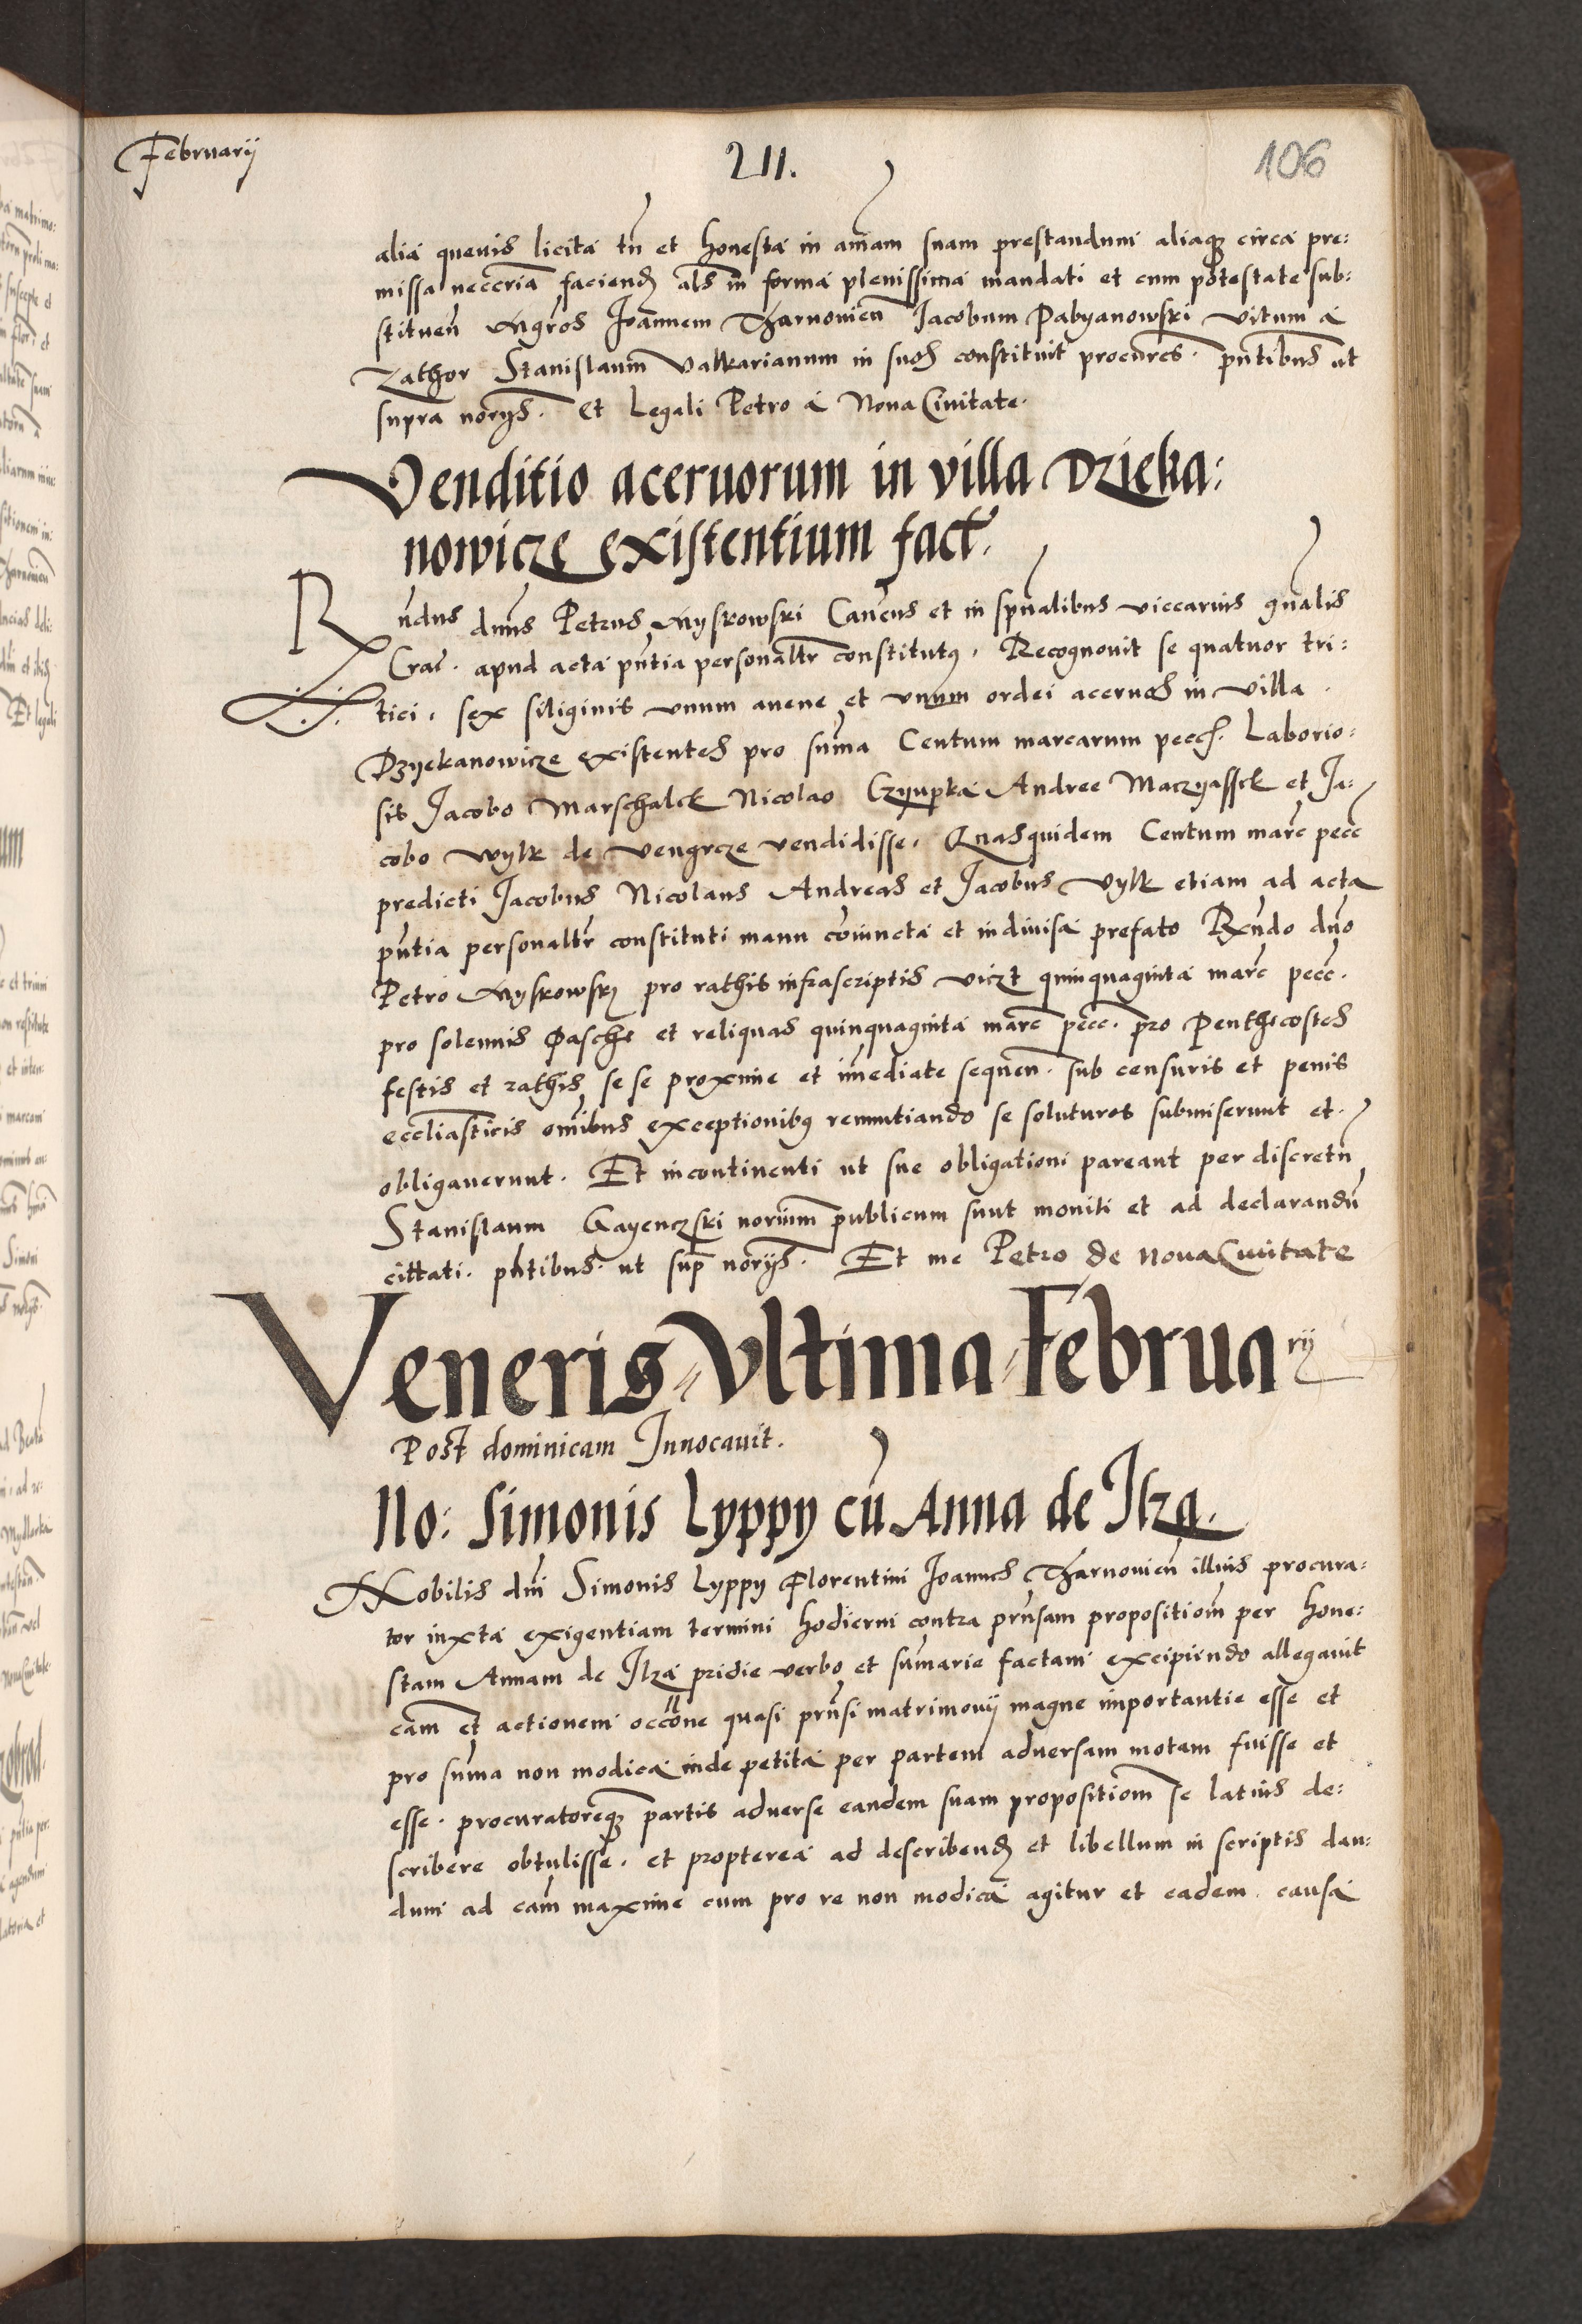 Februarij
211.
106
alia quevis licita tñ et honesta in aīam suam prestandum aliaqȝ circa pre:
missa neccria faciend als in forma plenissima mandati et cum potestate sub:
stituen Mgros Joannem Tharnovien Jacobum Pabyanowski Vitum a
Zathor Stanislaum Valkarianum in suos constituit procures. pntibus ut
supra norijs. Et Legali Petro a Nova Civitate.
Venditio acervorum in villa Dzieka:
nowicze existentium fact.
Rndus dnus Petrus Myskowski Cancus et in spualibus viccarius gnalis
Crac. apud acta pntia personaltr constitutq, Recognovit se quatuor tri:
tici, sex siliginis unum avene et unum ordei acervos in villa
Dzyekanowicze existentes pro suma Centum marcarum pecc. Laborio:
sis Jacobo Marschalck Nicolao Czyupka Andree Maczyassck et Ja:
cobo Wylk de Vengrcze vendidisse, Quasquidem Centum marc pecc
predicti Jacobus Nicolaus Andreas et Jacobus Vylk etiam ad acta
pntia personaltr constituti manu coniuncta et indivisa prefato Rndo dno
Petro Myskowsky pro rathis infrascriptis vidzt quinquaginta marc pecc.
pro solennis Pasche et reliquas quinquaginta marc pecc. pro Penthecostes
festis et rathis se se proxime et imediate sequen. sub censuris et penis
eccliasticis omibus exceptionibq renuntiando se soluturos submiserunt et
obligaverunt. Et incontinenti ut sue obligationi pareant per discretu
Stanislaum Gayenczski norium publicum sunt moniti et ad declarandu
cittati. pntibus. ut sup norijs. Et me Petro de Nova Civitate
Veneris Ultima Februarij
Post dominicam Innocavit.
No: Simonis Lyppy cu Anna de Ilza.
Nobilis dni Simonis Lyppy Florentini Joannes Tharnovien illius procura:
tor iuxta exigentiam termini hodierni contra prnsam propositiom per hone:
stam Annam de Ilza pridie verbo et sumarie factam excipiendo allegavit
cam et actionem occone quasi prnsi matrimonij magne importantie esse et
pro suma non modica inde petita per partem adversam motam fuisse et
esse. procuratoreqȝ partis adverse eandem suam propositiom se latius de:
scribere obtulisse. et propterea ad describend et libellum in scriptis dan:
dum ad cam maxime cum pro re non modica agitur et eadem causa